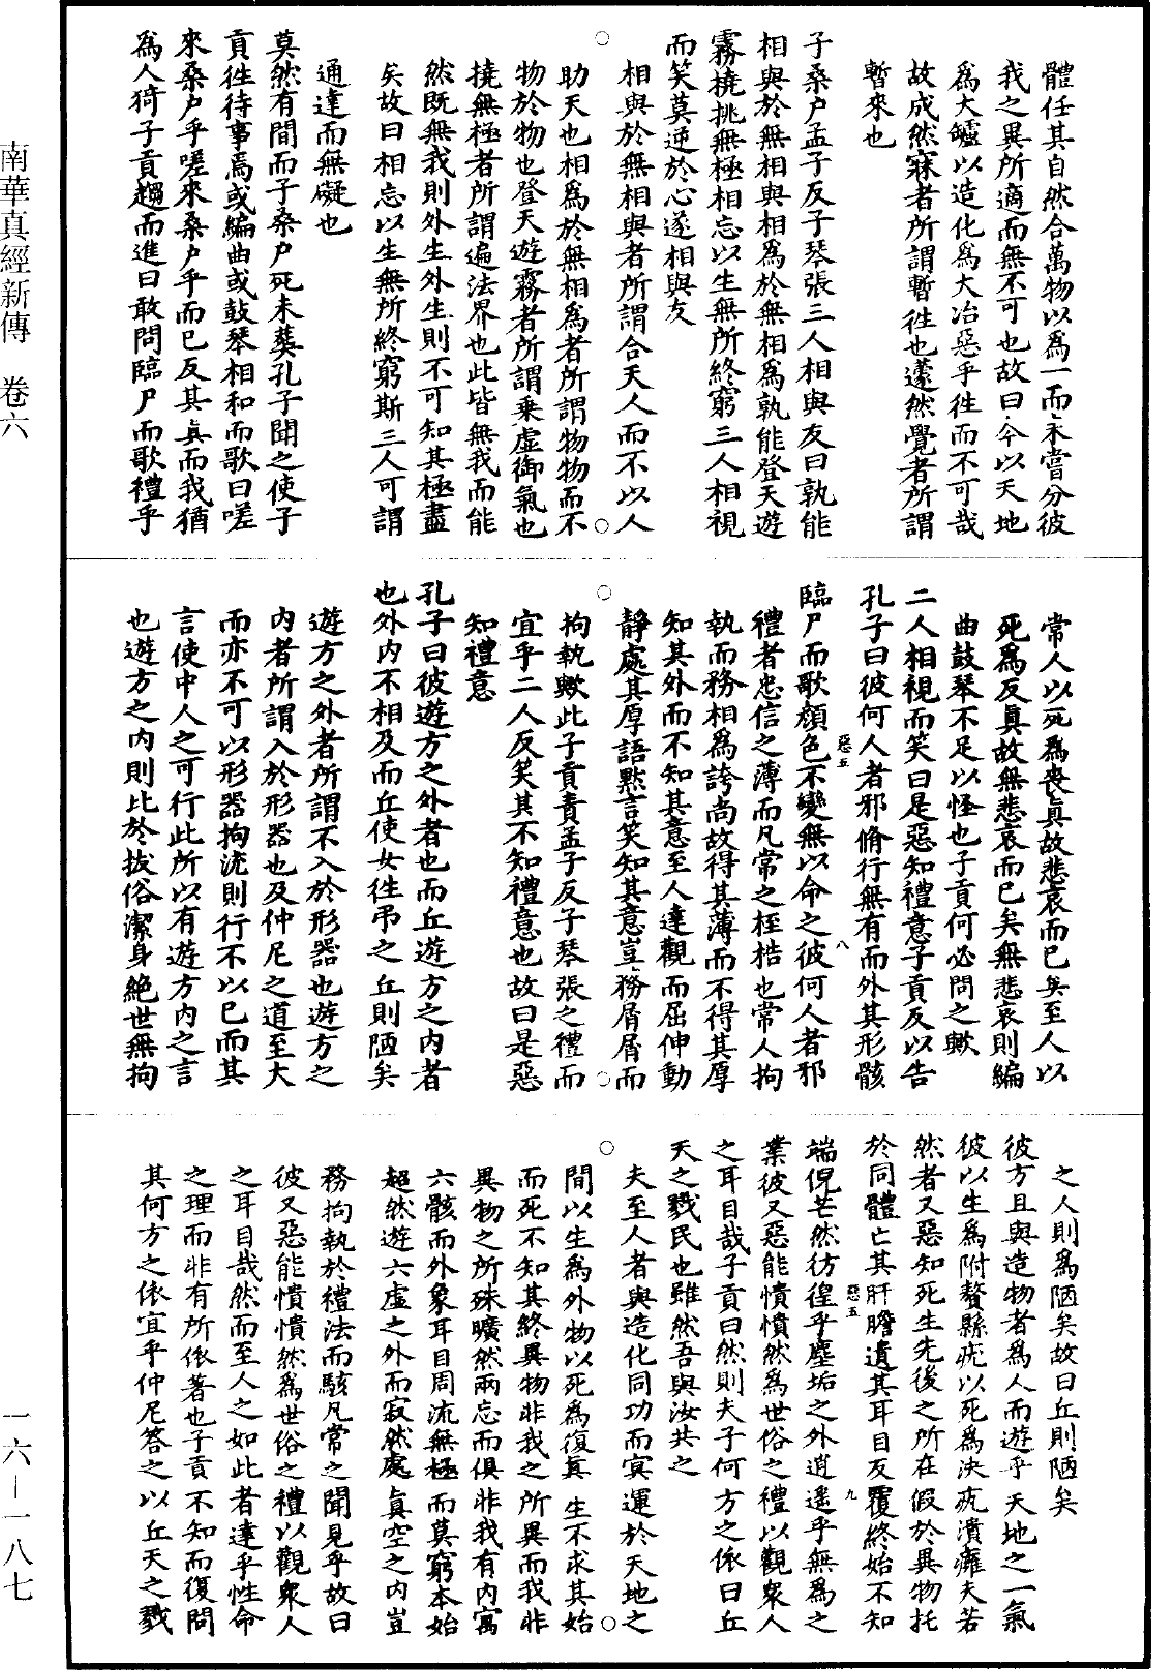 體任其自然合萬物以爲一而未嘗分彼
我之異所適而無不可也故曰今以天地
爲大鑪以造化爲大冶惡乎徃而不可哉
故成然寐者所謂暫徃也蘧然覺者所謂
暫來也
子桑户孟子反子琴張三人相與友曰孰能
相與於無相與相爲於無相爲孰能登天遊
霧撓挑無極相忘以生無所終窮三人相視
而笑莫逆於心遂相與友
相與於無相與者所謂合天人而不以人
助天也相爲於無相爲者所謂物物而不
物於物也登天遊霧者所謂乗虛御氣也
撓無極者所謂遍法界也此皆無我而能
然既無我則外生外生則不可知其極盡
矣故曰相忘以生無所終窮斯三人可謂
通達而無礙也
莫然有間而子桑户死未葬孔子聞之使子
貢徃待事焉或編曲或鼓琴相和而歌曰嗟
來桑户乎嗟來桑户乎而已反其眞而我猶
爲人猗子貢趨而進曰敢問臨尸而歌禮乎
常人以死爲喪眞故悲哀而已矣至人以
死爲反眞故無悲哀而已矣無悲哀則編
曲鼓琴不足以怪也子貢何必問之歟
二人相視而笑曰是惡知禮意子貢反以告
孔子曰彼何人者邪脩行無有而外其形骸
惡五 八
臨尸而歌顔色不變無以命之彼何人者邪
禮者忠信之薄而凡常之桎梏也常人拘
執而務相爲誇尚故得其薄而不得其厚
知其外而不知其意至人達觀而屈伸動
靜處其厚語默言笑知其意豈務屑屑而
拘執歟此子貢責孟子反子琴張之禮而
宜乎二人反笑其不知禮意也故曰是惡
知禮意
孔子曰彼遊方之外者也而丘遊方之内者
也外内不相及而丘使女徃弔之丘則陋矣
遊方之外者所謂不入於形器也遊方之
内者所謂入於形器也及仲尼之道至大
而亦不可以形器拘流則行不以已而其
言使中人之可行此所以有遊方内之言
也遊方之内則比於拔俗潔身絶世無拘
之人則爲陋矣故曰丘則陋矣
彼方且與造物者爲人而遊乎天地之一氣
彼以生爲附贅縣疣以死爲決𤴯潰癰夫若
然者又惡知死生先後之所在假於異物托
於同體亡其肝膽遺其耳目反覆終始不知
惡五 九
端倪芒然彷徨乎塵垢之外逍遥乎無爲之
業彼又惡能憒憒然爲世俗之禮以觀衆人
之耳目哉子貢曰然則夫子何方之依曰丘
天之戮民也雖然吾與汝共之
夫至人者與造化同功而㝠運於天地之
間以生爲外物以死爲復眞生不求其始
而死不知其終異物非我之所異而我非
異物之所殊曠然兩忘而俱非我有内寓
六骸而外象耳目周流無極而莫窮本始
超然遊六虛之外而寂然處眞空之内豈
務拘執於禮法而駭凡常之聞見乎故曰
彼又惡能憒憒然爲世俗之禮以觀衆人
之耳目哉然而至人之如此者達乎性命
之理而非有所依著也子貢不知而復問
其何方之依宜乎仲尼答之以丘天之戮
南華真經新傳 卷六
一六—一八七